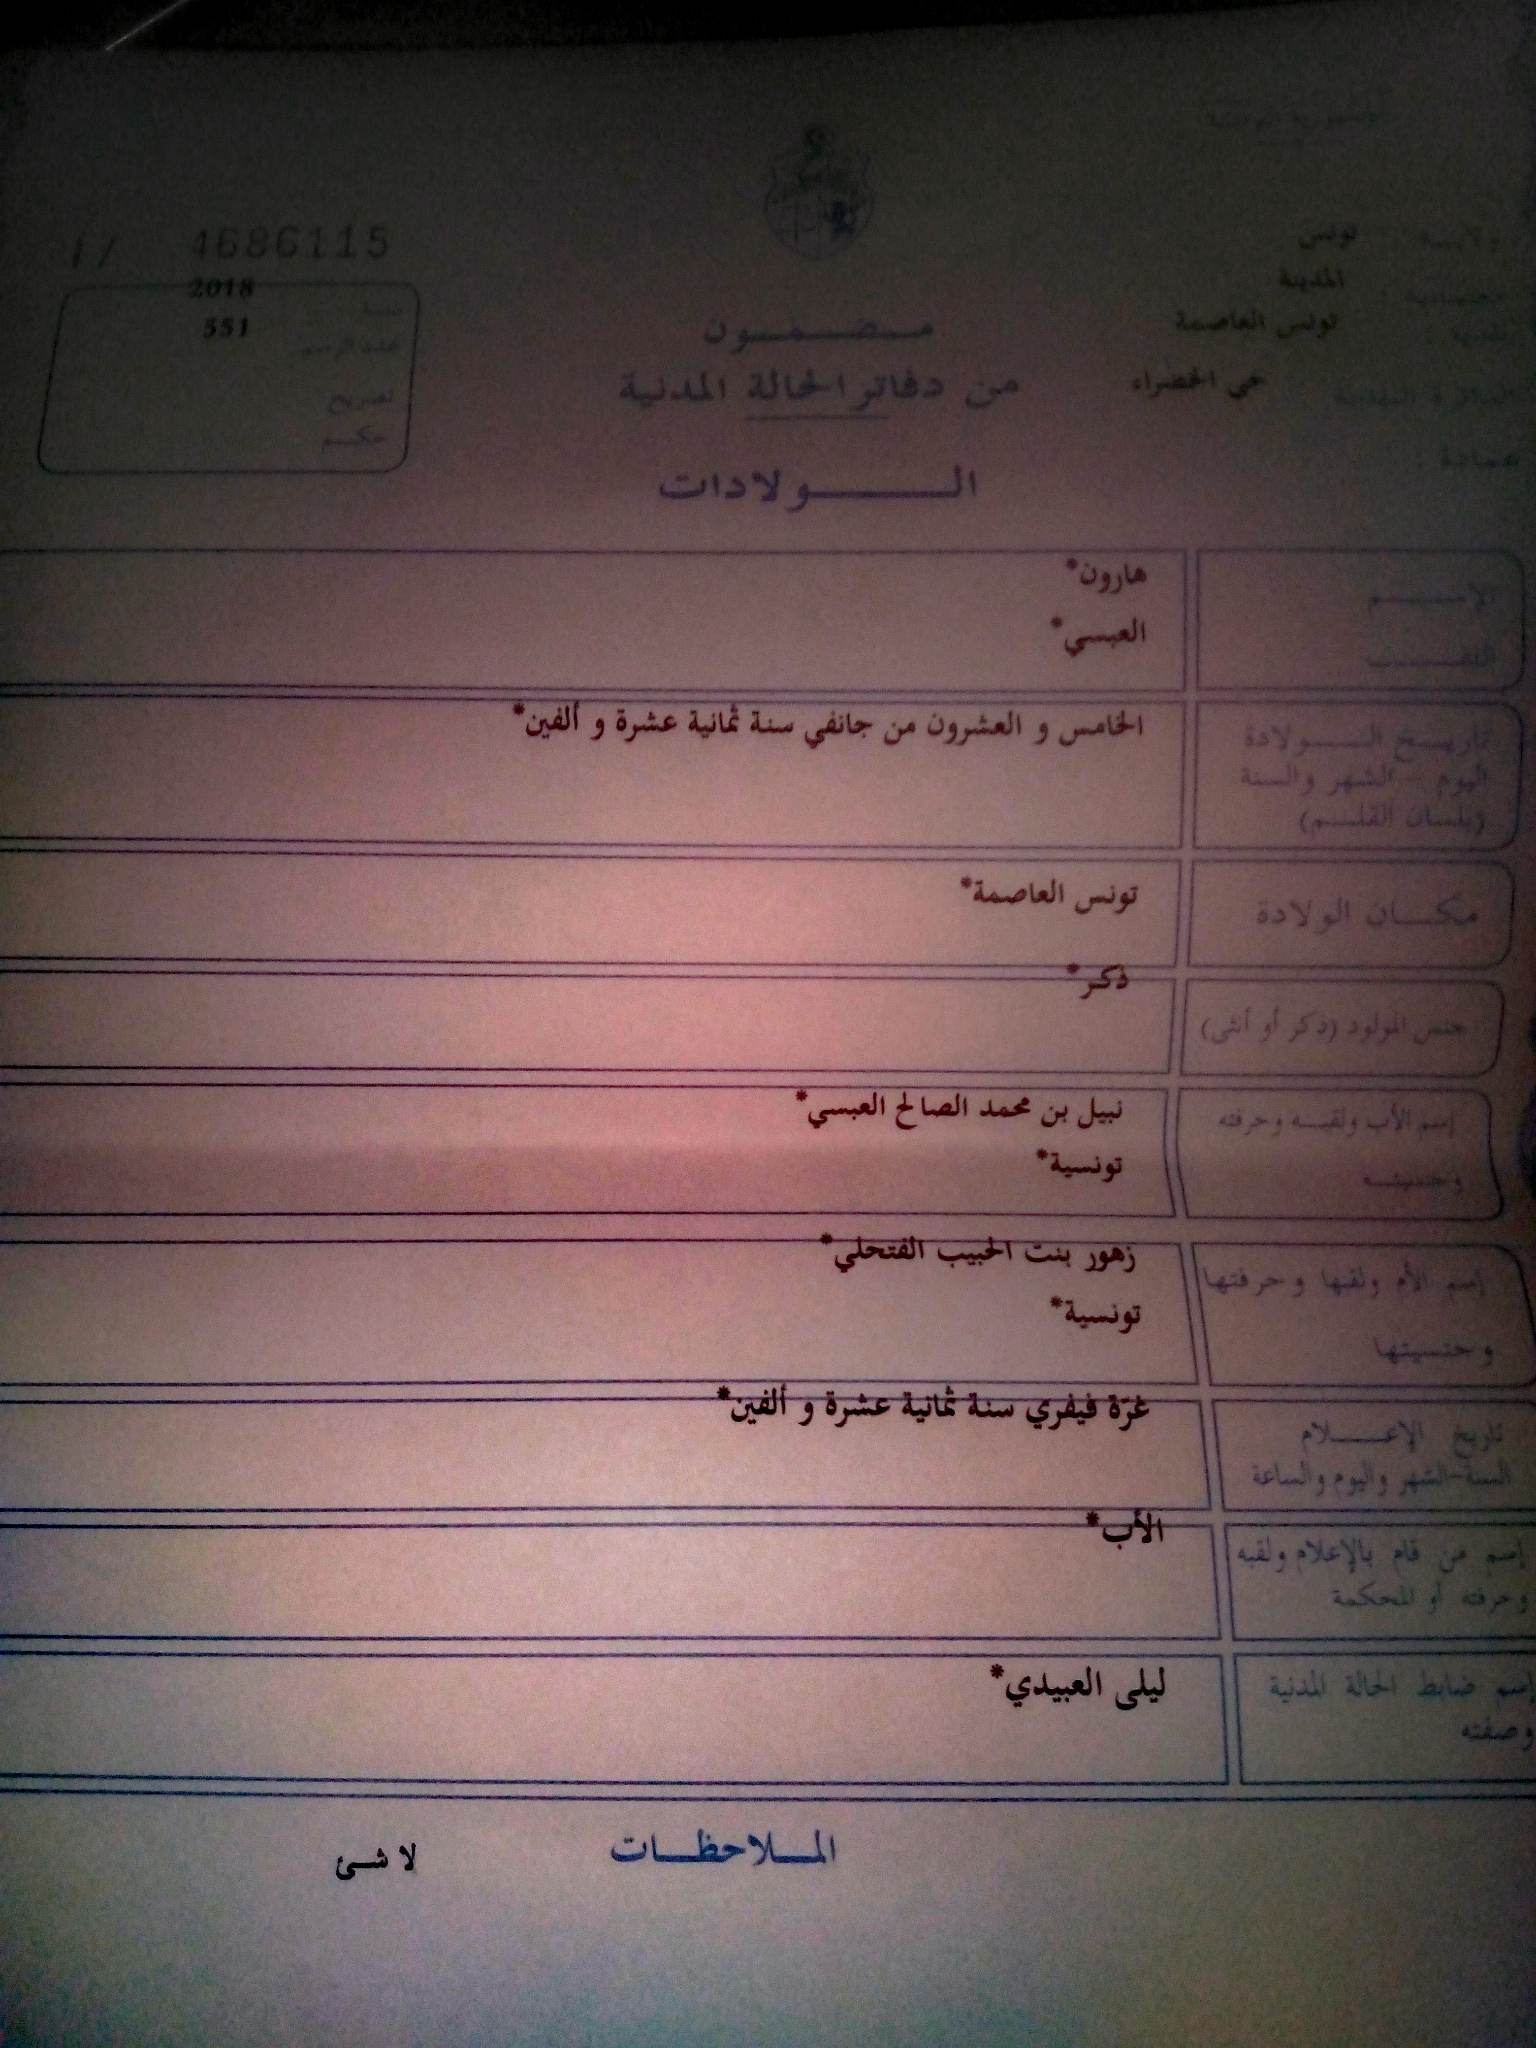 الجمهورية التونسية
ولايــة : تونس
معتمدية : المدينة
بلدية : تونس العاصمة
الدائرة البلدية حي الخضراء
عمادة :
4686115
2018 سنة
551 عدد الرسم
تصريح
حكــم
مــضــمــون
من دفاتر الحالة المدنية
الــولادات
الإســـم هارون*
اللقـــب العبسي*
تاريــخ الــــولادة الخامس و العشرون من جانفي سنة ثمانية عشرة و ألفين*
اليوم - الشهر والسنة
(بلسان القلــم)
مكـــان الولادة تونس العاصمة*
جنس المولود (ذكر أو أنثى) ذكر*
إسم الأب ولقبــه وحرفته نبيل بن محمد الصالح العبسي*
وجنسيتــه تونسية*
إسم الأم ولقبها وحرفتها زهور بنت الحبيب الفتحلي*
وجنسيتها تونسية*
تاريخ الإعــــلام غرّة فيفري سنة ثمانية عشرة و ألفين*
السنة-الشهر واليوم والساعة
إسم من قام بالإعلام ولقبه الأب*
وحرفته أو المحكمة
إسم ضابط الحالة المدنية ليلى العبيدي*
وصفته
المــلاحظــات
لا شئ